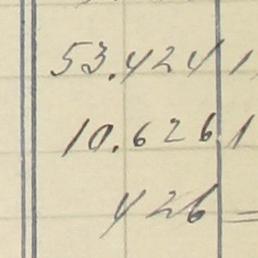 53.424 1
10.626 1
426 =